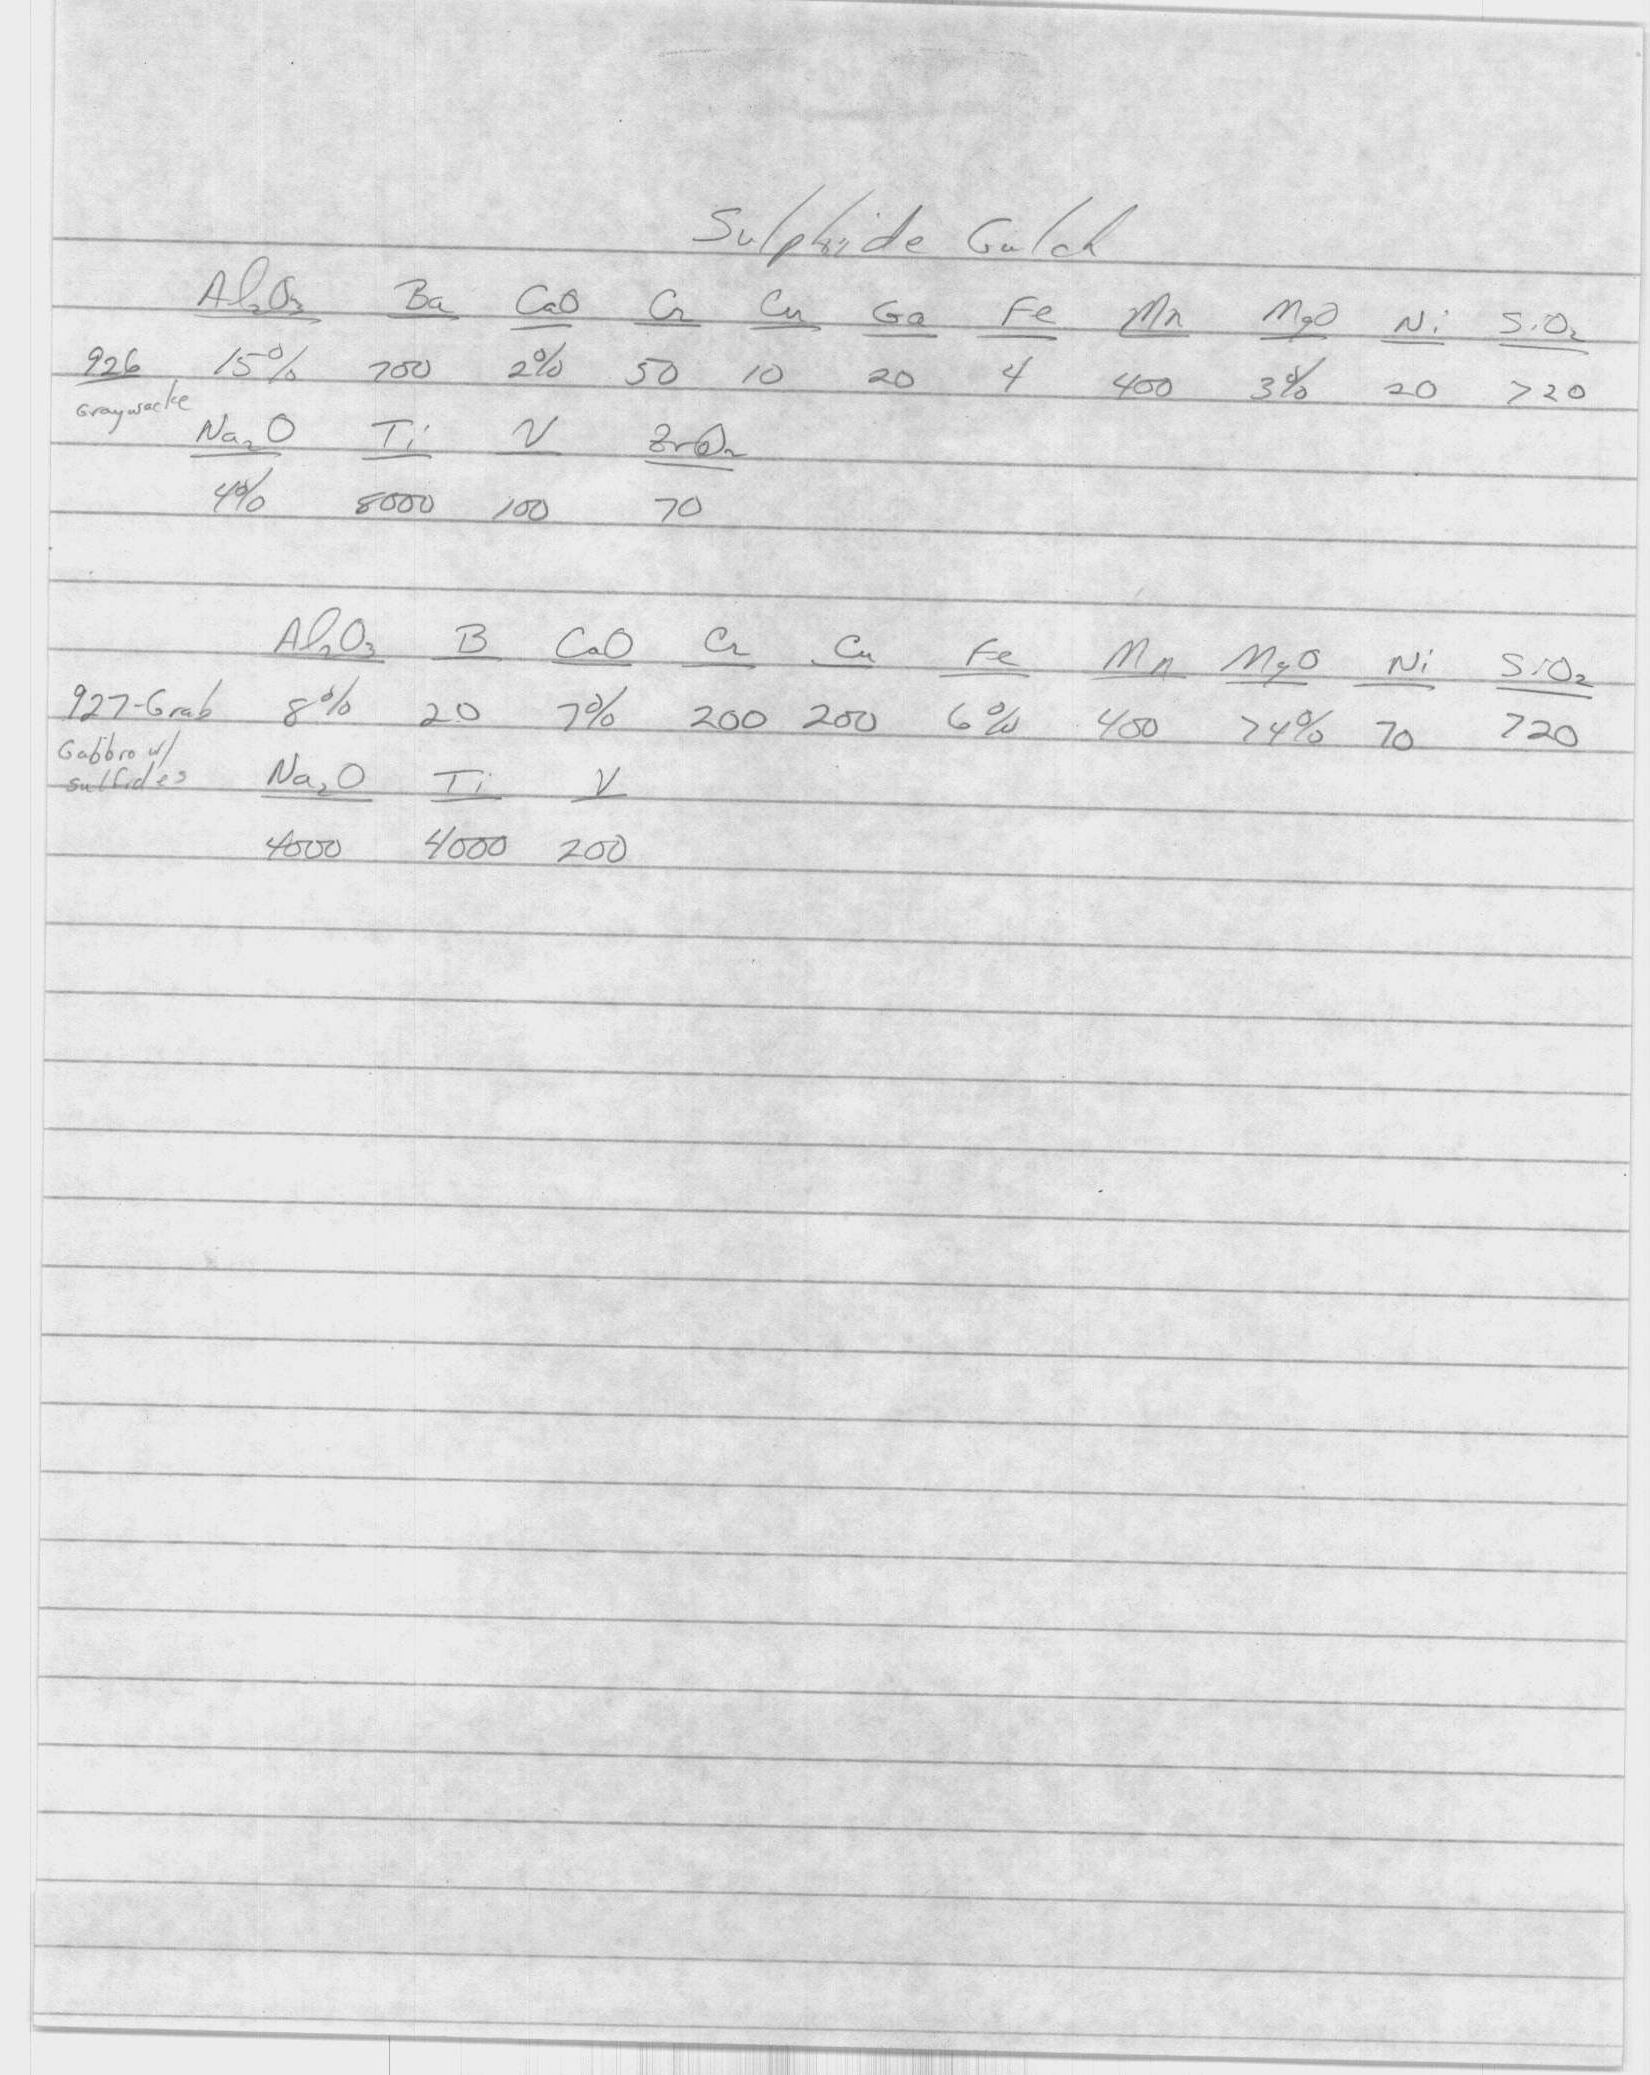 Sulphide Gulch
Al₂O₃ Ba CaO Cr Cu Ga Fe Mn MgO Ni SiO₂
926 15% 700 2% 50 10 20 4 400 3% 20 >20
Graywacke
Na₂O Ti V ZrO₂
4% 8000 100 70
Al₂O₃ B CaO Cr Cu Fe Mn MgO Ni SiO₂
927-Grab 8% 20 7% 200 200 6% 400 >4% 70 >20
Gabbro w/
sulfides
Na₂O Ti V
4000 4000 200